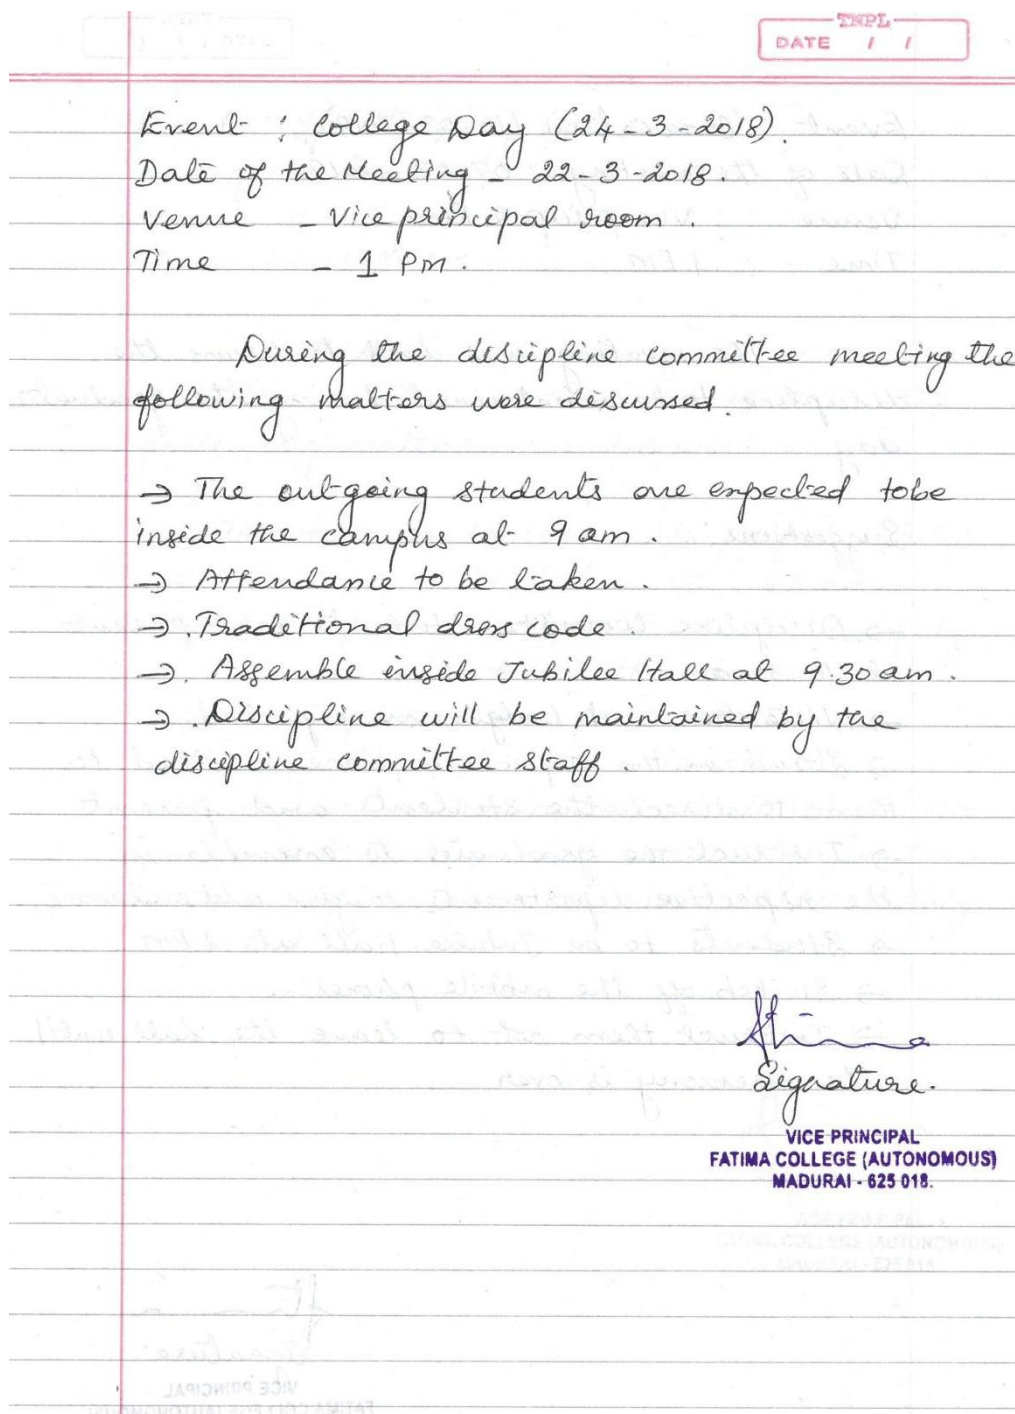 TNPL
DATE / /
Event : College Day (24-3-2018).
Date of the Meeting - 22-3-2018.
Venue - Vice principal room.
Time - 1 Pm.
During the discipline committee meeting the
following matters were discussed.
→ The outgoing students are expected tobe
inside the campus at 9 am.
→ Attendance to be taken.
→ Traditional dress code.
→ Assemble inside Jubilee Hall at 9.30 am.
→ Discipline will be maintained by the
discipline committee staff.
Signature.
VICE PRINCIPAL
FATIMA COLLEGE (AUTONOMOUS)
MADURAI - 625 018.